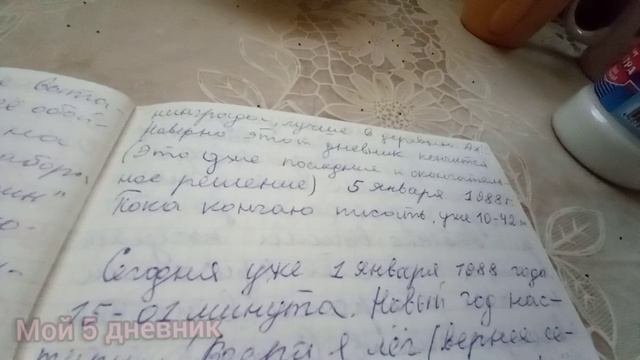 е выпа
её собой-
на
забор,
ин"
ко-
нинградом, лучше в деревни. Ах,
Наверно этот дневник кончится
(Это уже последнее и окончатель-
ное решение) 5 января 1988г.
Пока кончаю писать, уже 10-42м
Сегодня уже 1 января 1988 года
15-01 минута. Новый год нас-
Вчера я лёг (вернее
Мой 5 дневник